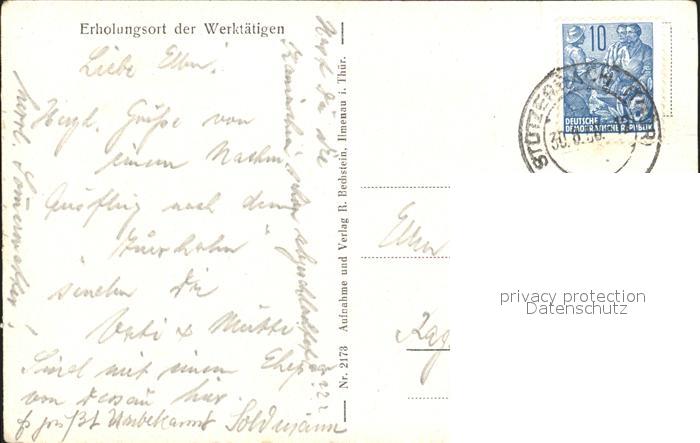 Erholungsort der Werktätigen
Liebe Ellen!
Herzl. Grüße von
einem Nachm.
Ausflug nach dem
"Auerhahn"
senden Dir
Vati & Mutti
Sind mit einem Ehep.
von Dessau hier.
Unbekannt Soldmann
Herrl. Sommerwetter!
Hast Du die
Kaninchen schon
Nr. 2173 Aufnahme und Verlag R. Bechstein, Ilmenau i. Thür.
10
DEUTSCHE
DEMOKRATISCHE REPUBLIK
STÜTZERBACH
Ellen
privacy protection
Datenschutz